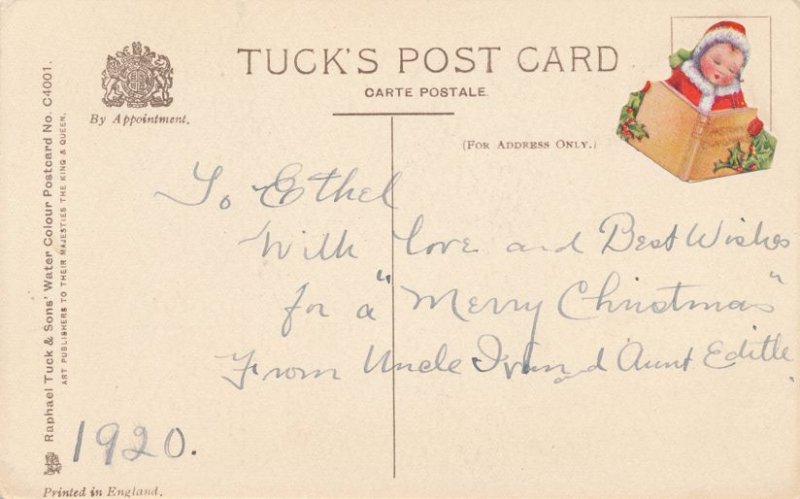 TUCK'S POST CARD
CARTE POSTALE.
By Appointment.
(FOR ADDRESS ONLY.)
Raphael Tuck & Sons' Water Colour Postcard No. C4001.
ART PUBLISHERS TO THEIR MAJESTIES THE KING & QUEEN.
To Ethel
With love and Best Wishes
for a "Merry Christmas"
From Uncle and Aunt Edith.
1920.
Printed in England.